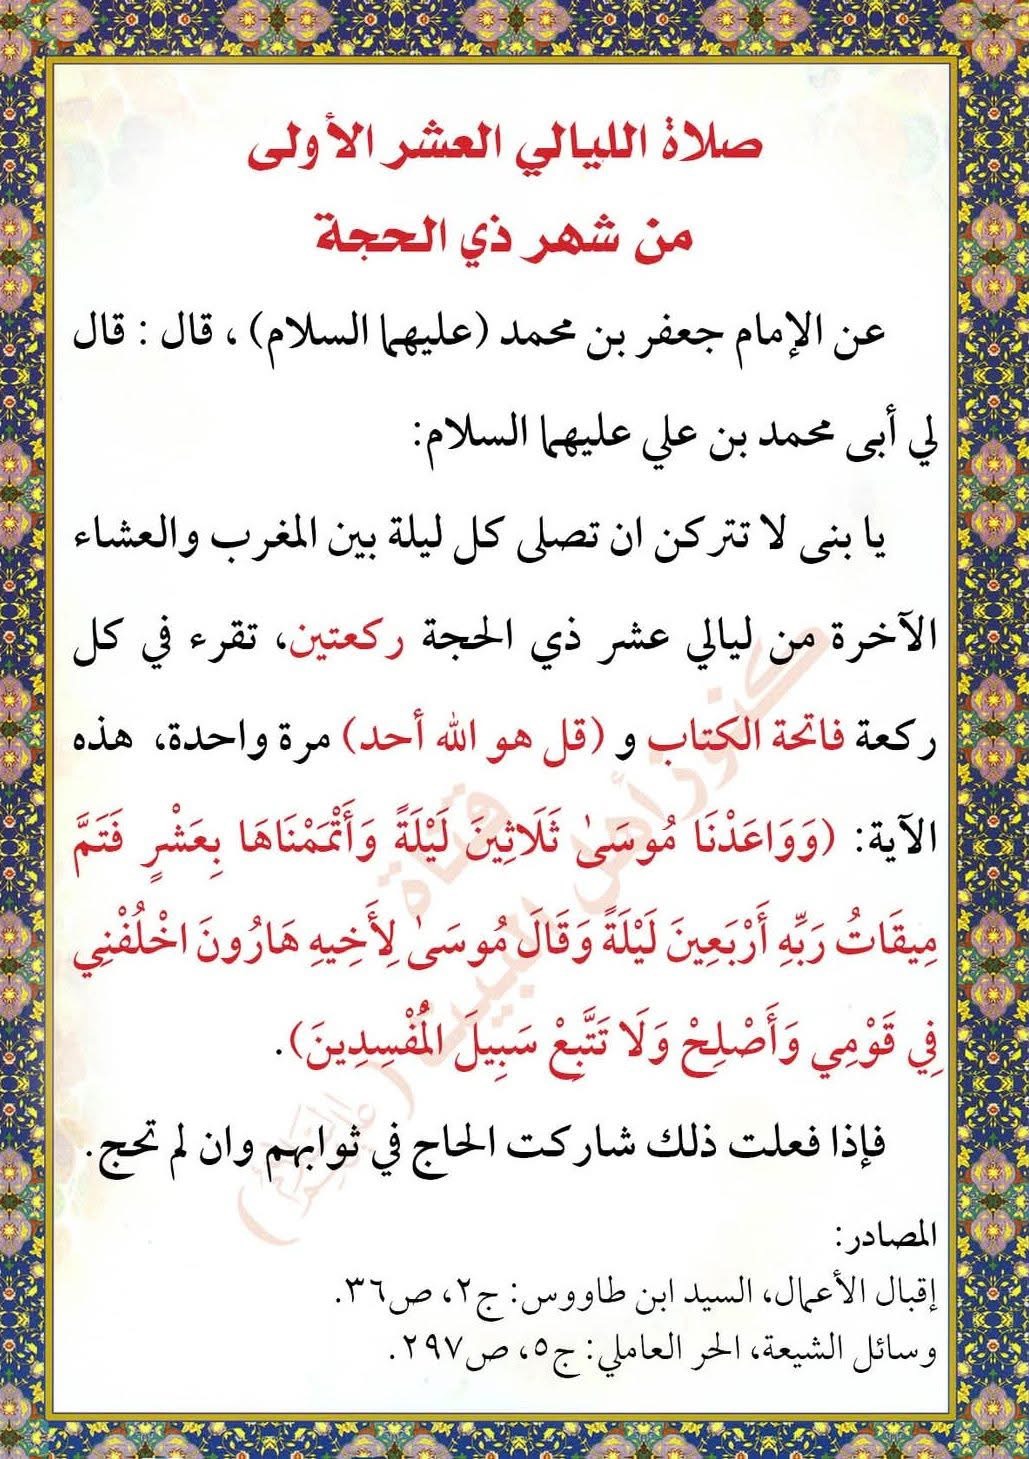 صلاة الليالي العشر الأولى
من شهر ذي الحجة
عن الإمام جعفر بن محمد (عليهما السلام) ، قال : قال
لي أبى محمد بن علي عليهما السلام:
يا بنى لا تتركن ان تصلى كل ليلة بين المغرب والعشاء
الآخرة من ليالي عشر ذي الحجة ركعتين، تقرء في كل
ركعة فاتحة الكتاب و (قل هو الله أحد) مرة واحدة، هذه
الآية: (وَوَاعَدْنَا مُوسَىٰ ثَلَاثِينَ لَيْلَةً وَأَتْمَمْنَاهَا بِعَشْرٍ فَتَمَّ
مِيقَاتُ رَبِّهِ أَرْبَعِينَ لَيْلَةً وَقَالَ مُوسَىٰ لِأَخِيهِ هَارُونَ اخْلُفْنِي
فِي قَوْمِي وَأَصْلِحْ وَلَا تَتَّبِعْ سَبِيلَ الْمُفْسِدِينَ).
فإذا فعلت ذلك شاركت الحاج في ثوابهم وان لم تحج.
المصادر:
إقبال الأعمال، السيد ابن طاووس: ج٢، ص٣٦.
وسائل الشيعة، الحر العاملي: ج٥، ص٢٩٧.
قناة
كنوز أهل البيت (عليهم السلام)